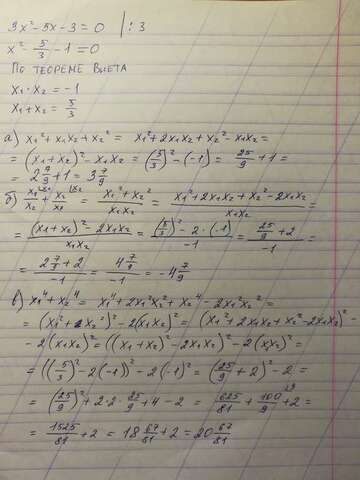 3x² - 5x - 3 = 0 | : 3
x² - 5/3 - 1 = 0
ПО ТЕОРЕМЕ ВИЕТА
x₁ · x₂ = -1
x₁ + x₂ = 5/3
а) x₁² + x₁x₂ + x₂² = x₁² + 2x₁x₂ + x₂² - x₁x₂ =
= (x₁ + x₂)² - x₁x₂ = (5/3)² - (-1) = 25/9 + 1 =
= 2 7/9 + 1 = 3 7/9
б) x₁/x₂ + x₂/x₁ = (x₁² + x₂²)/(x₁x₂) = (x₁² + 2x₁x₂ + x₂² - 2x₁x₂)/(x₁x₂) =
= ((x₁ + x₂)² - 2x₁x₂)/(x₁x₂) = ((5/3)² - 2 · (-1))/(-1) = (25/9 + 2)/(-1) =
= (2 7/9 + 2)/(-1) = (4 7/9)/(-1) = -4 7/9
в) x₁⁴ + x₂⁴ = x₁⁴ + 2x₁²x₂² + x₂⁴ - 2x₁²x₂² =
= (x₁² + x₂²)² - 2(x₁x₂)² = (x₁² + 2x₁x₂ + x₂² - 2x₁x₂)² -
- 2(x₁x₂)² = ((x₁ + x₂)² - 2x₁x₂)² - 2(x₁x₂)² =
= ((5/3)² - 2(-1))² - 2(-1)² = (25/9 + 2)² - 2 =
= (25/9)² + 2·2·25/9 + 4 - 2 = 625/81 + 100/9 + 2 =
= 1525/81 + 2 = 18 67/81 + 2 = 20 67/81